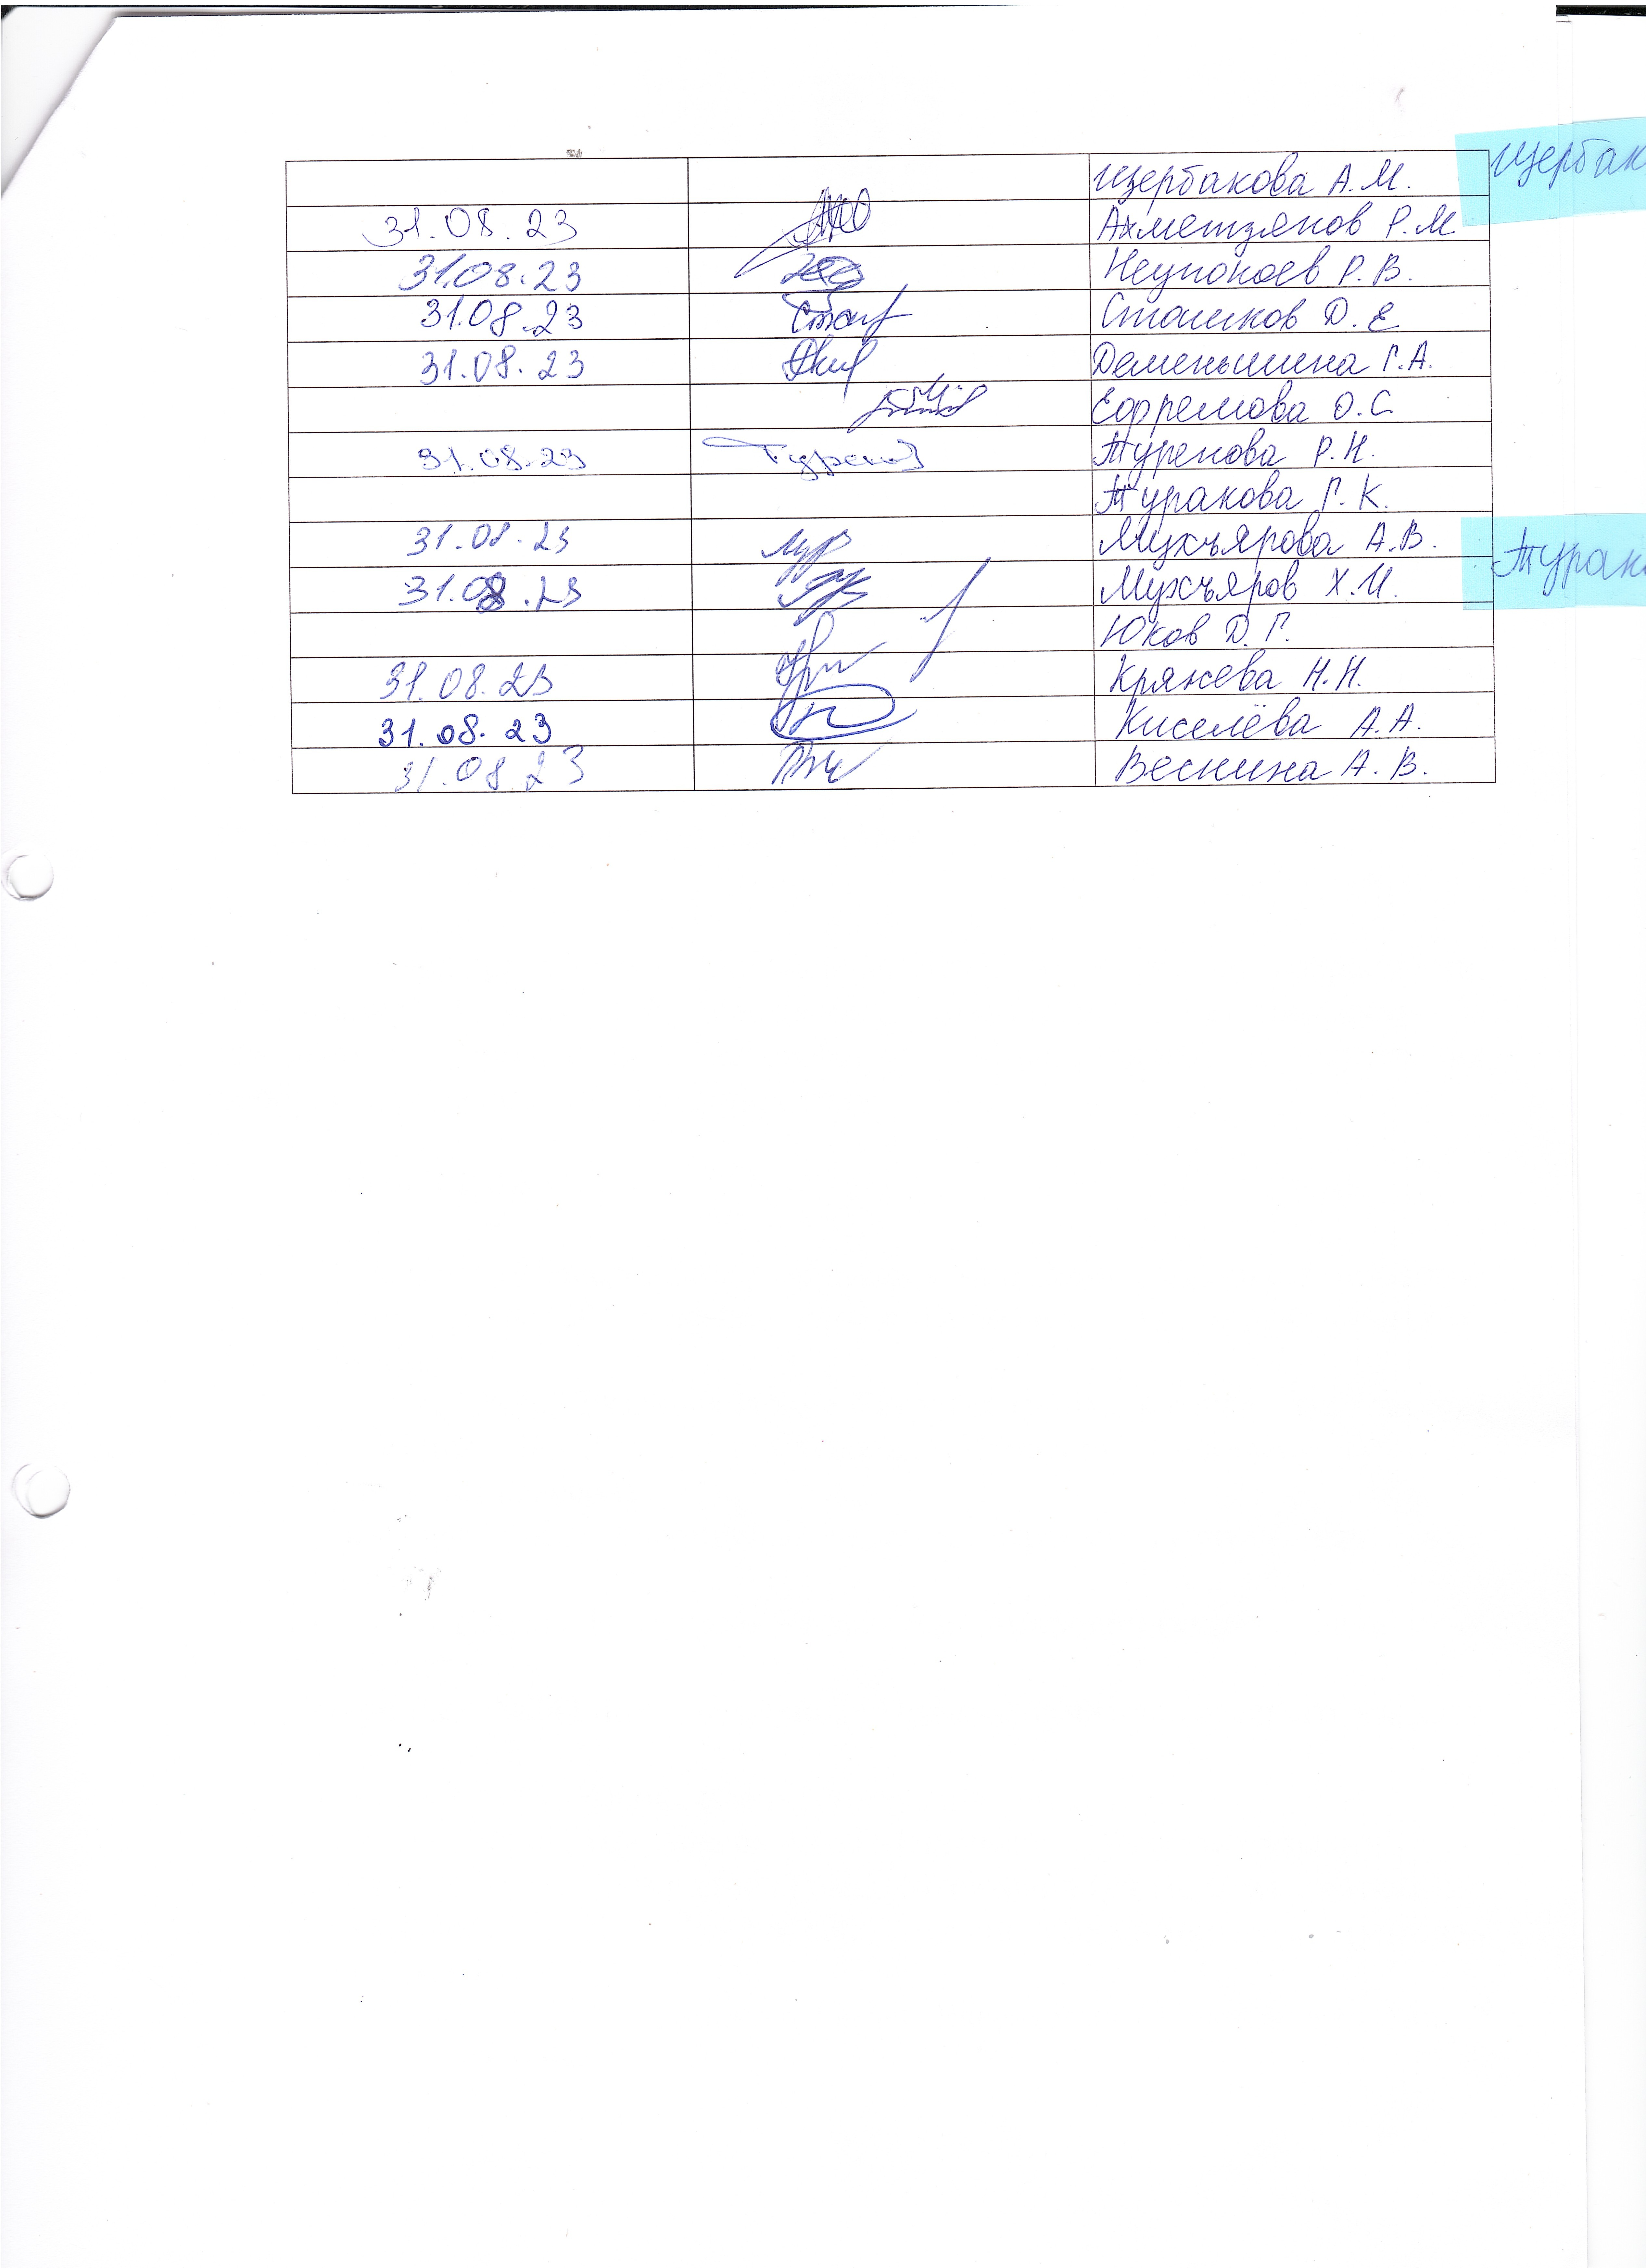 Щербакова А.М.
Щербак
31.08.23 Ахметзянов Р.М
31.08.23 Неупокоев Р.В.
31.08.23 Сташков Д.Е
31.08.23 Деменьшина Г.А.
Ефремова О.С.
31.08.23 Турен Туренова Р.Н.
Туракова Г.К.
31.08.23 Мухъярова А.В.
31.08.23 Мухъяров Х.И.
Турак
Юков Д.Г.
31.08.23 Кряжева Н.Н.
31.08.23 Киселёва А.А.
31.08.23 Веснина А.В.